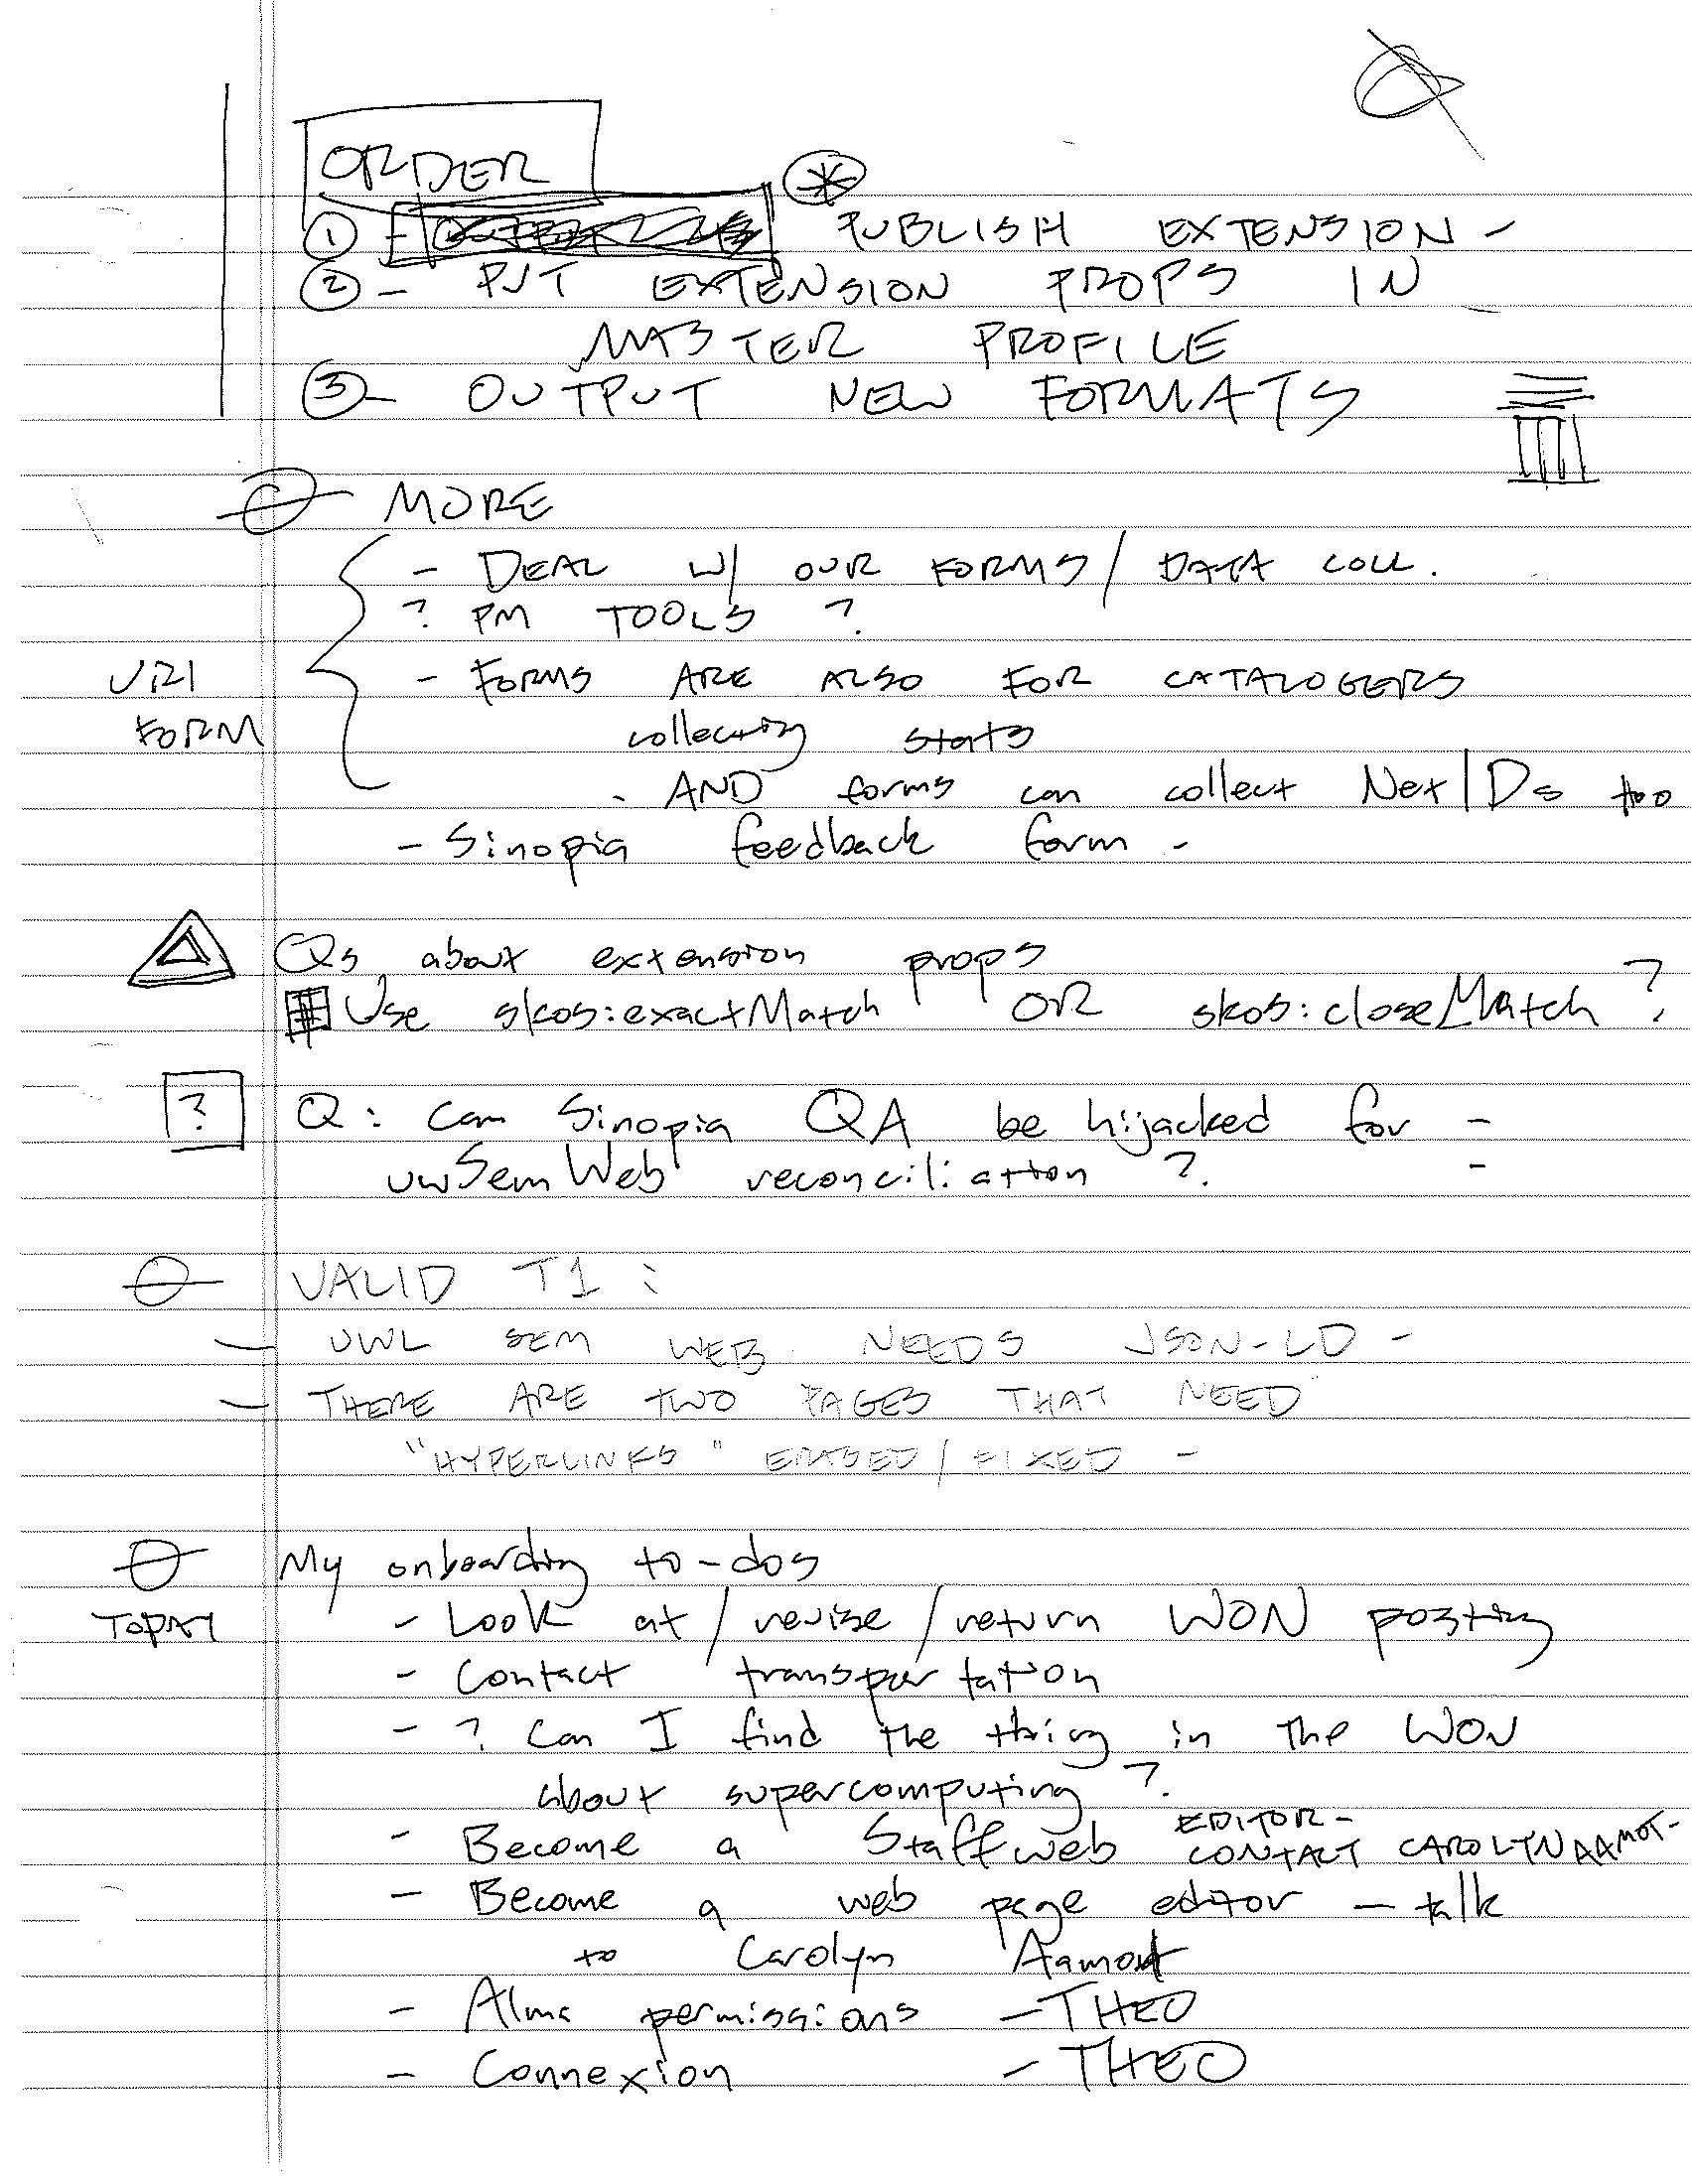 ORDER
① - PUBLISH EXTENSION -
② - PUT EXTENSION PROPS IN
MASTER PROFILE
③ - OUTPUT NEW FORMATS
MORE
- DEAL W/ OUR FORMS / DATA COLL.
? PM TOOLS ?
URI
FORM
- FORMS ARE ALSO FOR CATALOGERS
collecting stats
- AND forms can collect Net IDs too
- Sinopia feedback form -
Qs about extension props
Use skos:exactMatch OR skos:closeMatch ?
? Q: can Sinopia QA be hijacked for -
uwSemWeb reconciliation ? -
VALID T1 :
- UWL SEM WEB NEEDS JSON-LD -
- THERE ARE TWO PAGES THAT NEED
"HYPERLINKS" ERASED / FIXED -
My onboarding to-dos
TODAY
- Look at / revise / return WON posting
- Contact transportation
- ? Can I find the thing in the WON
about supercomputing ?
- Become a Staffweb EDITOR -
CONTACT CAROLYN AAMOT -
- Become a web page editor - talk
to Carolyn Aamot
- Alma permissions - THEO
- Connexion - THEO